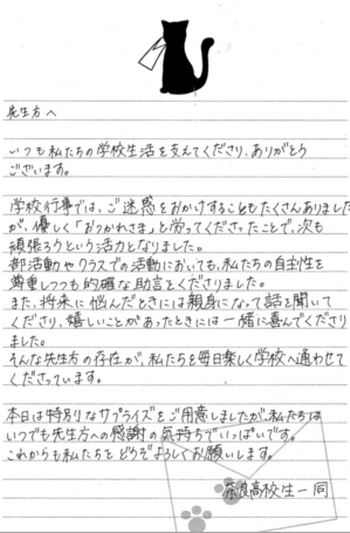 先生方へ
いつも私たちの学校生活を支えてくださり、ありがとう
ございます。
学校行事では、ご迷惑をおかけすることもたくさんありました
が、優しく「おつかれさま」と労ってくださったことで、次も
頑張ろうという活力となりました。
部活動やクラスでの活動においても、私たちの自主性を
尊重しつつも的確な助言をくださりました。
また、将来に悩んだときには親身になって話を聞いて
くださり、嬉しいことがあったときには一緒に喜んでくださり
ました。
そんな先生方の存在が、私たちを毎日楽しく学校へ通わせて
くださっています。
本日は特別なサプライズをご用意しましたが、私たちは
いつでも先生方への感謝の気持ちでいっぱいです。
これからも私たちをどうぞよろしくお願いします。
奈良高校生一同